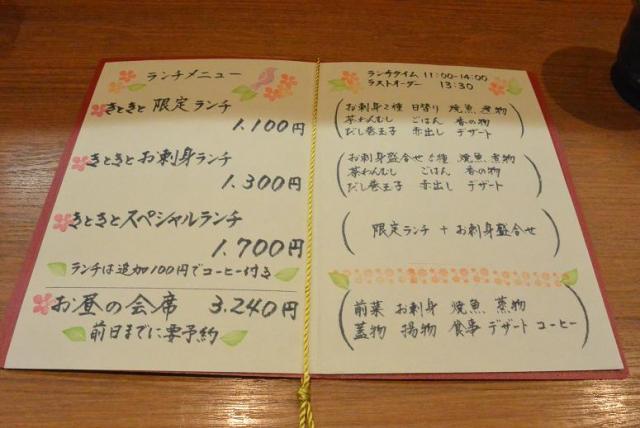 ランチメニュー
きときと 限定ランチ
1.100円
きときとお刺身ランチ
1.300円
きときとスペシャルランチ
1.700円
ランチは追加100円でコーヒー付き
お昼の会席 3.240円
前日までに要予約
ランチタイム 11:00-14:00
ラストオーダー 13:30
お刺身2種 日替り 焼魚 煮物
茶わんむし ごはん 香の物
だし巻玉子 赤出し デザート
お刺身盛合せ 5種 焼魚 煮物
茶わんむし ごはん 香の物
だし巻玉子 赤出し デザート
限定ランチ + お刺身盛合せ
前菜 お刺身 焼魚 蒸物
蓋物 揚物 食事 デザート コーヒー